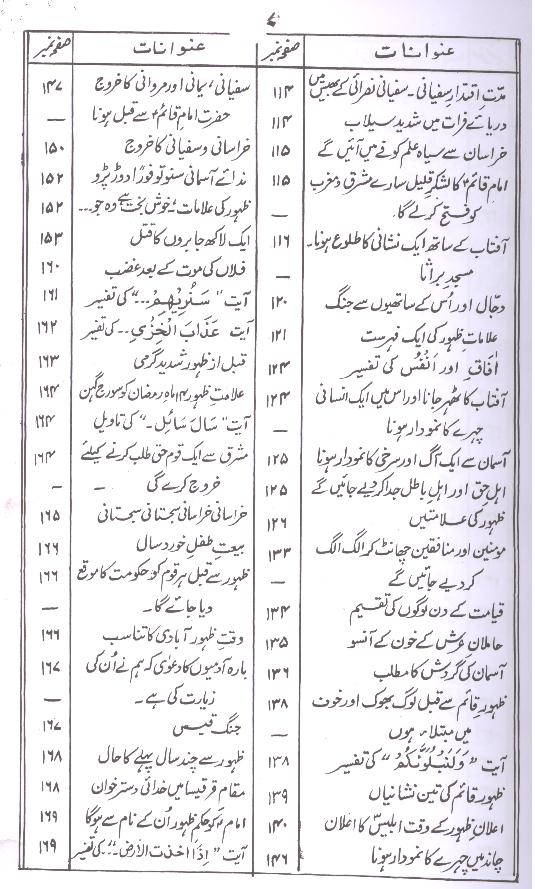 ۷
عنوانات صفحہ نمبر
مدّتِ اقتدارِ سفیانی۔ سفیانی نصرانی کے بھیس میں ۱۱۴
دریائے فرات میں شدید سیلاب ۱۱۴
خراسان سے سیاہ علم کوفے میں آئیں گے ۱۱۵
امام قائمؑ کا لشکرِ قلیل سارے مشرق و مغرب ۱۱۵
کو فتح کرلے گا۔ —
آفتاب کے ساتھ ایک نشانی کا طلوع ہونا۔ ۱۱۶
مسجدِ براثا —
دجّال اور اُس کے ساتھیوں سے جنگ ۱۲۰
علاماتِ ظہور کی ایک فہرست ۱۲۱
اٰفَاقِ اور اَنْفُسِ کی تفسیر ۱۲۴
آفتاب کا ٹھہر جانا اور اس میں ایک انسانی ۱۲۴
چہرے کا نمودار ہونا —
آسمان سے ایک آگ اور سرخی کا نمودار ہونا ۱۲۵
اہلِ حق اور اہلِ باطل جدا کردیے جائیں گے ۱۲۵
ظہور کی علامتیں ۱۲۶
مومنین اور منافقین چھانٹ کر الگ الگ ۱۳۳
کر دیے جائیں گے —
قیامت کے دن لوگوں کی تقسیم ۱۳۴
حاملانِ عرش کے خون کے آنسو ۱۳۵
آسمان کی گردش کا مطلب ۱۳۶
ظہورِ قائم سے قبل لوگ بھوک اور خوف ۱۳۸
میں مبتلاء ہوں —
آیت ”وَلَنَبْلُوَنَّكُمْ“ کی تفسیر ۱۳۸
ظہورِ قائم کی تین نشانیاں ۱۳۹
اعلانِ ظہور کے وقت ابلیس کا اعلان ۱۴۰
چاند میں چہرے کا نمودار ہونا ۱۴۶
عنوانات صفحہ نمبر
سفیانی، یمانی اور مروانی کا خروج ۱۴۷
حضرت امام قائمؑ سے قبل ہونا —
خراسانی و سفیانی کا خروج ۱۵۰
ندائے آسمانی سنو تو فوراً دوڑ پڑو ۱۵۲
ظہور کی علامات، خوش بخت ہے وہ جو... ۱۵۲
ایک لاکھ جابروں کا قتل ۱۵۳
فلاں کی موت کے بعد غضب ۱۶۰
آیت ”سَنُرِيْهِمْ...“ کی تفسیر ۱۶۱
آیت عَذَابَ الْخِزْىِ.. کی تفسیر ۱۶۲
قبل از ظہور شدید گرمی ۱۶۳
علامتِ ظہور ۱۴ ماہ رمضان کو سورج گہن ۱۶۴
آیت ”سَالَ سَائِل۔“ کی تاویل ۱۶۴
مشرق سے ایک قوم حق طلب کرنے کیلئے ۱۶۴
خروج کرے گی — —
خراسانی خراسانی سجستانی سجستانی ۱۶۵
بیعتِ طفلِ خورد سال ۱۶۶
ظہور سے قبل ہر قوم کو حکومت کا موقع ۱۶۶
دیا جائے گا۔ —
وقتِ ظہور آبادی کا تناسب ۱۶۶
بارہ آدمیوں کا دعویٰ کہ ہم نے اُن کی ۱۶۷
زیارت کی ہے۔ —
جنگ قیس ۱۶۷
ظہور سے چند سال پہلے کا حال ۱۶۸
مقام قرقیسا میں خدائی دسترخوان ۱۶۸
امامؑ کو حکمِ ظہور اُن کے نام سے ہوگا ۱۶۹
آیت ”اِذَا اَخَذَتِ الْاَرْضُ...“ کی تفسیر ۱۶۹